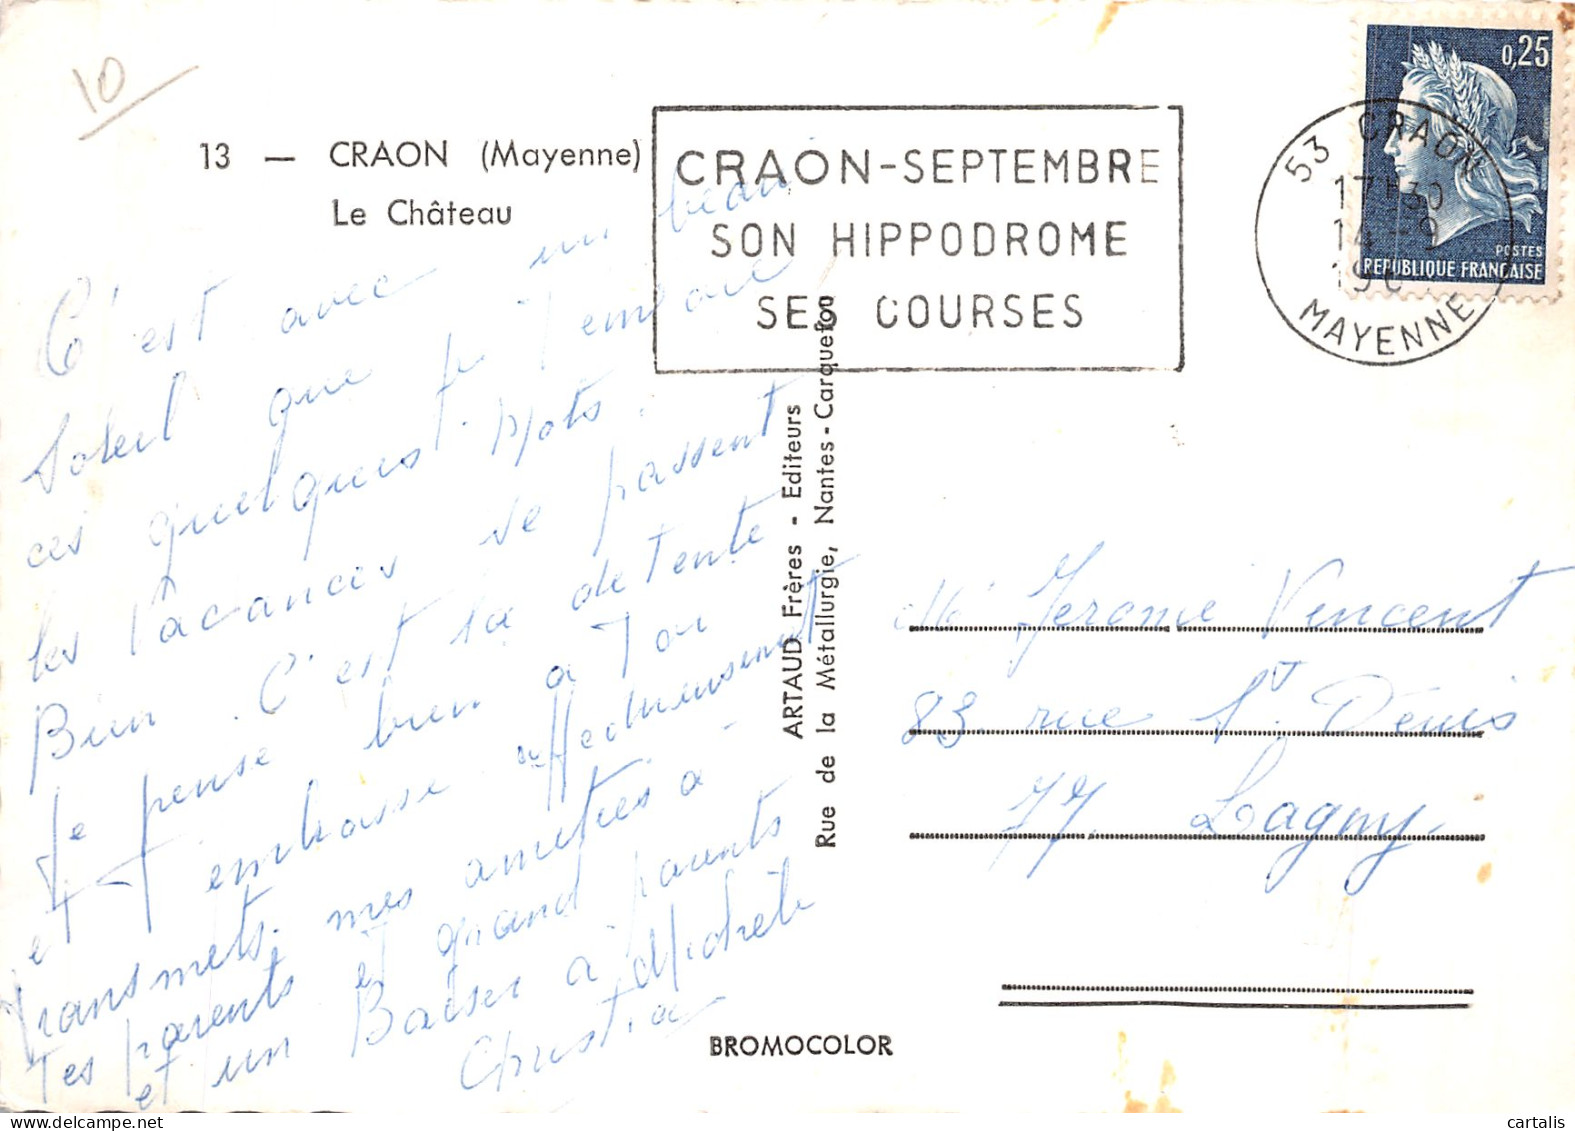 10
13 — CRAON (Mayenne)
Le Château
CRAON-SEPTEMBRE
SON HIPPODROME
SES COURSES
0,25
POSTES
REPUBLIQUE FRANÇAISE
53 CRAON
17H30
14-9
196
MAYENNE
C'est avec un beau
Soleil que je T'envoie
ces quelques Mots.
les Vacances se passent
Bien. C'est la detente
Je pense bien a Toi
et T'embrasse affectueusement
et
transmets mes amitiés a -
Tes parents et grand parents
et un Baiser a Michèle
Christia
ARTAUD Frères - Editeurs
Rue de la Métallurgie, Nantes-Carquefou
Jerome Vincent
83 rue St Denis
77 Lagny
BROMOCOLOR
cartalis